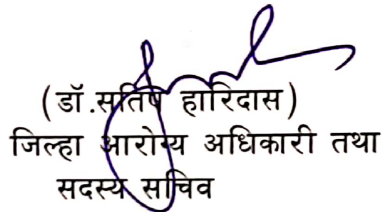 (डॉ.सतिष हारिदास)
जिल्हा आरोग्य अधिकारी तथा
सदस्य सचिव